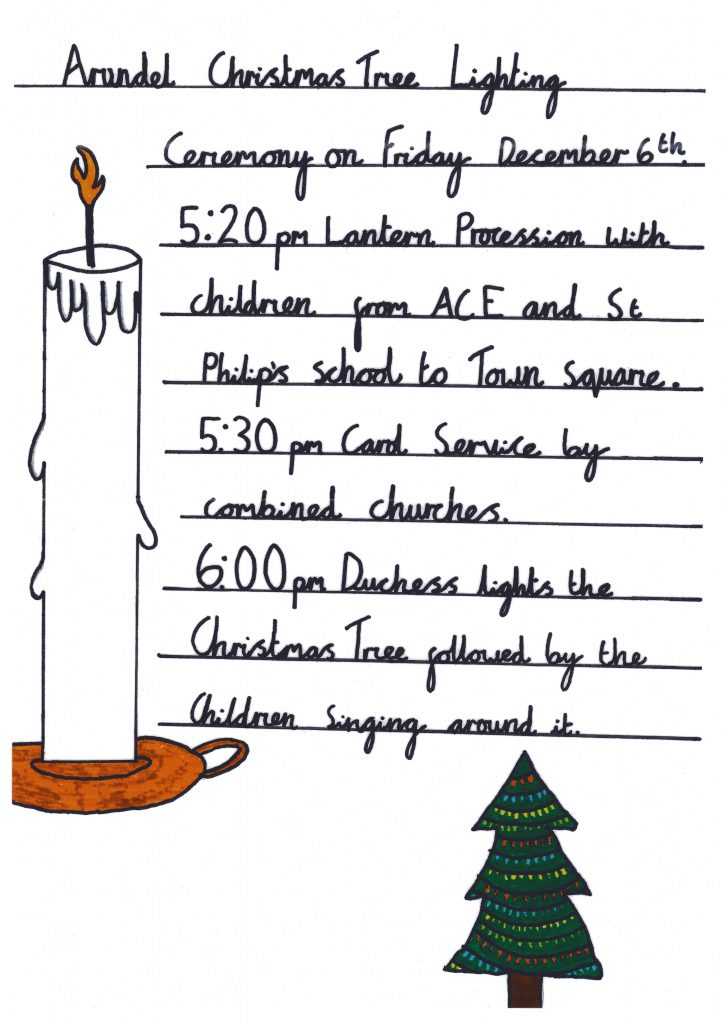 Arundel Christmas Tree Lighting
Ceremony on Friday December 6th.
5:20 pm Lantern Procession with
children from ACE and St
Philip's school to Town Square.
5:30 pm Carol Service by
combined churches.
6:00 pm Duchess lights the
Christmas Tree followed by the
Children singing around it.